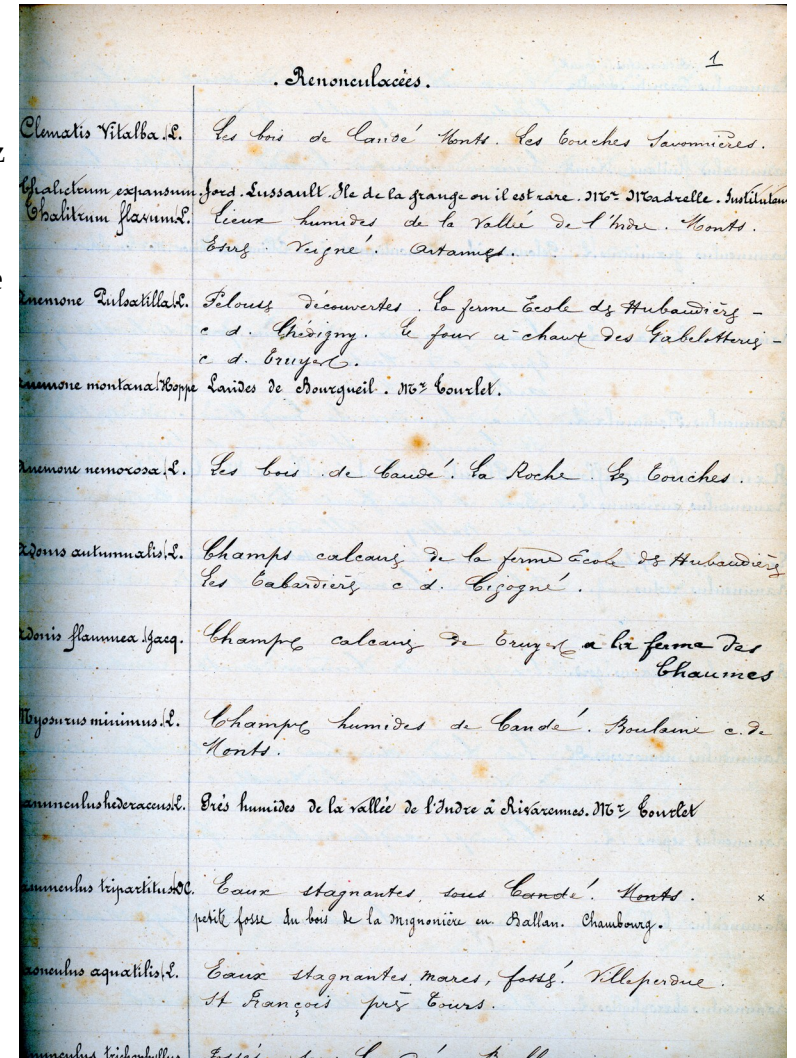 1
. Renonculacées .
Clematis Vitalba. L. Les bois de Candé Monts. Les Touches Savonnières.
Thalictrum expansum Jord. Lussault. Ile de la grange ou il est rare. Mr Madrelle. Instituteur
Thalitrum flavum L. Lieux humides de la Vallée de l'Indre. Monts.
Esvres. Veigné. Artannes.
nemone Pulsatilla L. Pelouses découvertes. La ferme Ecole des Hubaudières –
c d. Chédigny. Le four à chaux des Gabelotteries –
c d. Truyes.
nemone montana Hoppe Landes de Bourgueil. Mr Tourlet.
nemone nemorosa. L. Les bois de Candé. La Roche. Les Touches.
donis autumnalis. L. Champs calcaires de la ferme Ecole des Hubaudières
Les Tabardières c d. Cigogné.
donis flammea Jacq. Champs calcaires de Truyes a la ferme des
Chaumes
Myosurus minimus. L. Champs humides de Candé. Boulaine c. de
Monts.
anunculus hederaceus L. Prés humides de la vallée de l'Indre à Rivarennes. Mr Tourlet
anunculus tripartitus DC. Eaux stagnantes, sous Candé. Monts. x
petite fosse du bois de la Mignonière en Ballan. Chambourg.
anunculus aquatilis. L. Eaux stagnantes, mares, fossés. Villeperdue.
St François près Tours.